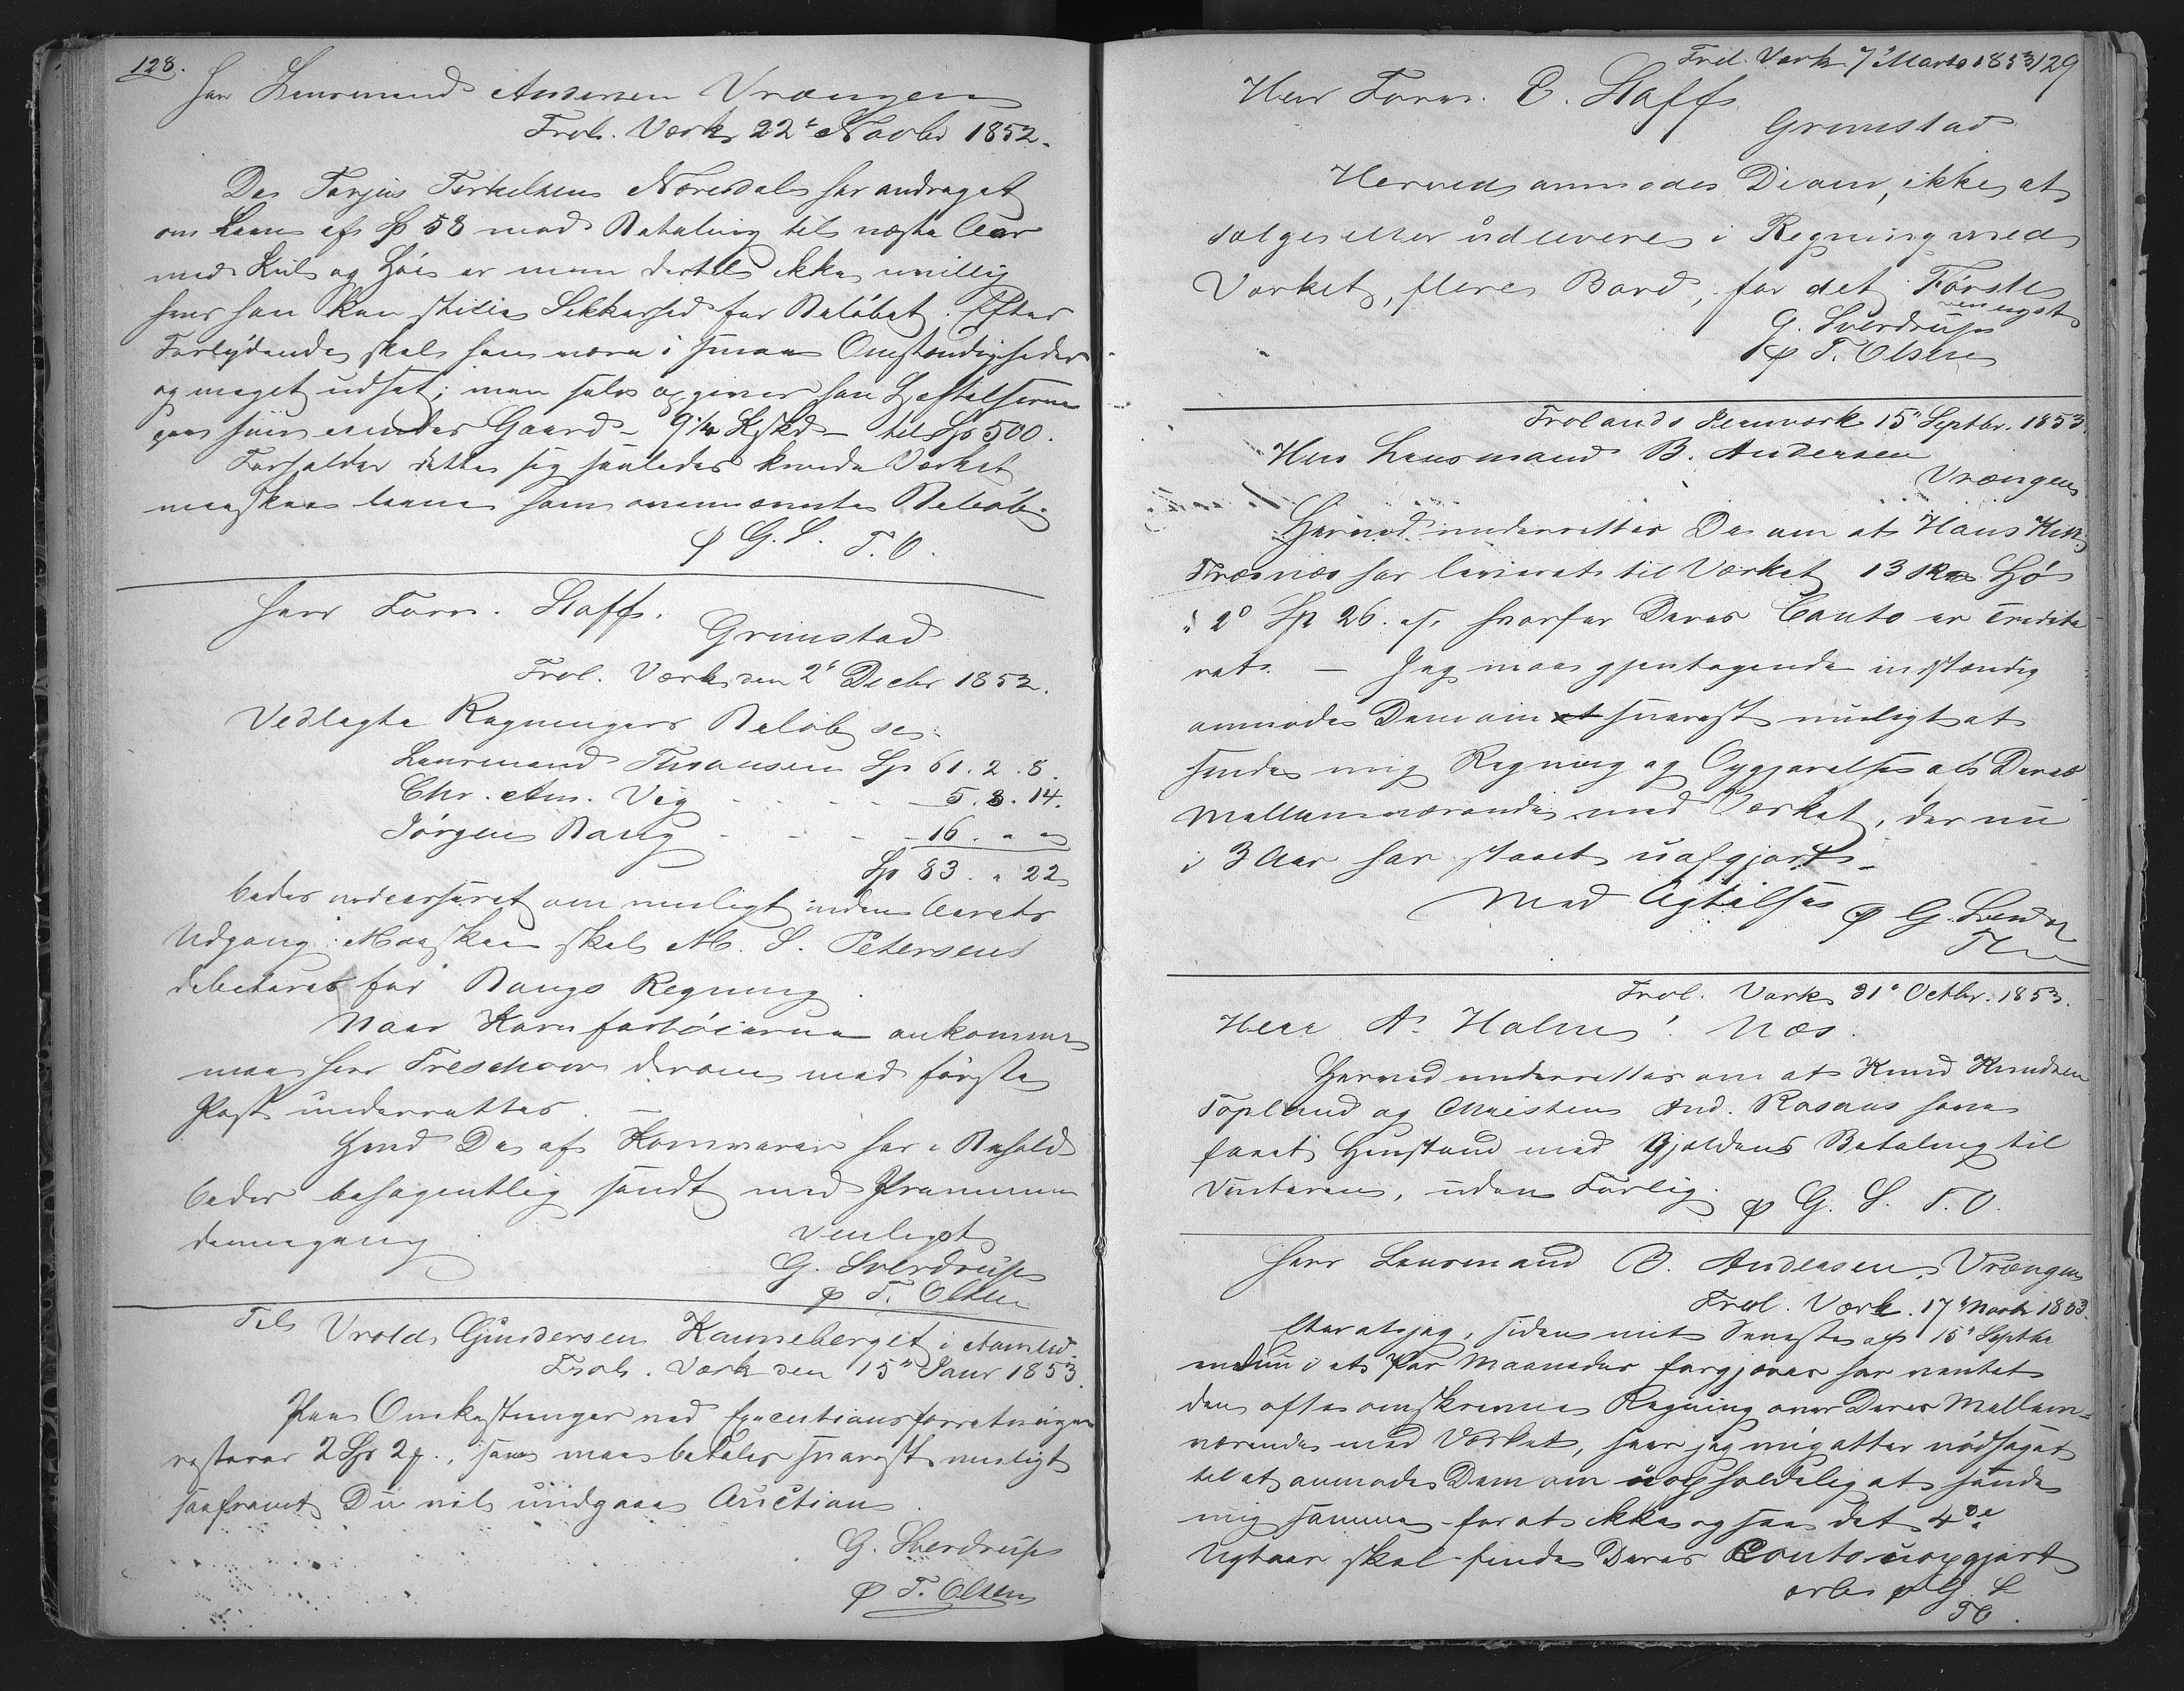 128.
Herr Lensmand Andersen Vrængen
Frol. Værk 22de Novbr 1852.
Da Tarjus Terkelsen Næresdal har andraget
om Laan af Sp 58 mod Betaling til næste Aar
med Kul og Høi er man dertil ikke uvillig
hvis han kan stille Sikkerhed for Beløbet. Efter
Forlydende skal han være i smaae Omstændigheder
og meget udsat; men selv opgiver han Hæftelserne
paa sin eiendes Gaard – 9 1/4 – til Sp 500.
Forholder dette sig saaledes kunde Værket
maaskee laane ham ovennævnte Beløb.
p G. S. T. O.
Herr Form. Staff.
Grimstad
Frol. Værk den 2de Decbr 1852.
Vedlagte Regningers Beløb sc:
Lensmand Thomsen Sp 61. 2. 8.
Chr. Am. Vig - - - - 5. 3. 14.
Jørgen Bang - - - - 16. " "
Sp 83. " 22
bedes indcasseret om muligt inden Aarets
Udgang. Maaskee skal M. S. Petersen
debiteres for Bangs Regning.
Naar Kornfartøierne ankommer
maa Herr Treschow derom med første
Post underrettes. —
Hvad De af Kornvarer har i Behold
bedes behagentlig sendt med Prammen
dennegang.
Venligst
G. Sverdrup
p T. Olsen
Til Vrold Gundersen Kanneberget i Aamlid.
Frol. Værk den 15de Janr 1853.
Paa Omkostninger ved Executionsforretningen
resterer 2 Sp 2 , som maa betales snarest muligt
saafremt Du vil undgaae Auction.
G. Sverdrup
p T. Olsen
Frol. Værk 7de Marts 1853 129
Herr Form. E. Staff
Grimstad
Herved anmodes De om, ikke at
sælge eller udlevere i Regning med
Værket, flere Bord, for det Første
venligst
G. Sverdrup
p T. Olsen
Frolands Jernværk 15de Septbr. 1853.
Herr Lensmand B. Andersen
Vrængen
Herved underrettes De om at Hans
Træsnæs har leveret til Værket 13 Hø
á 2 Sp 26. , hvorfor Deres Conto er credite
ret. — Jeg maa gjentagende indstændig
anmode Dem om snarest muligt at
sende mig Regning og Opgjørelse als Deres
Mellemværende med Værket, der nu
i 3 Aar har staaet uafgjort.
Med Agtelse p G. Sverdrup
T.
Frol. Værk 31te Octbr. 1853.
Herr A. Holm! Næs.
Herved underrettes om at Knud Knudsen
Topland og Christen And. Rosaas have
faaet Henstand med Gjældens Betaling til
Vinteren, uden Forlig. p G. S. T. O.
Herr Lensmand B. Andersen, Vrængen
Frol. Værk. 17de Novbr 1853.
Efterat jeg, siden mit Seneste af 15de Septbr
endnu i et Par Maaneder forgjæves har ventet
den ofte omskrevne Regning over Deres Mellem-
værende med Værket, seer jeg mig atter nødsaget
til at anmode Dem om uopholdelig at sende
mig samme – for at ikke ogsaa det 4de
Nytaar skal finde Deres Conto uopgjort
p G. S
TO.